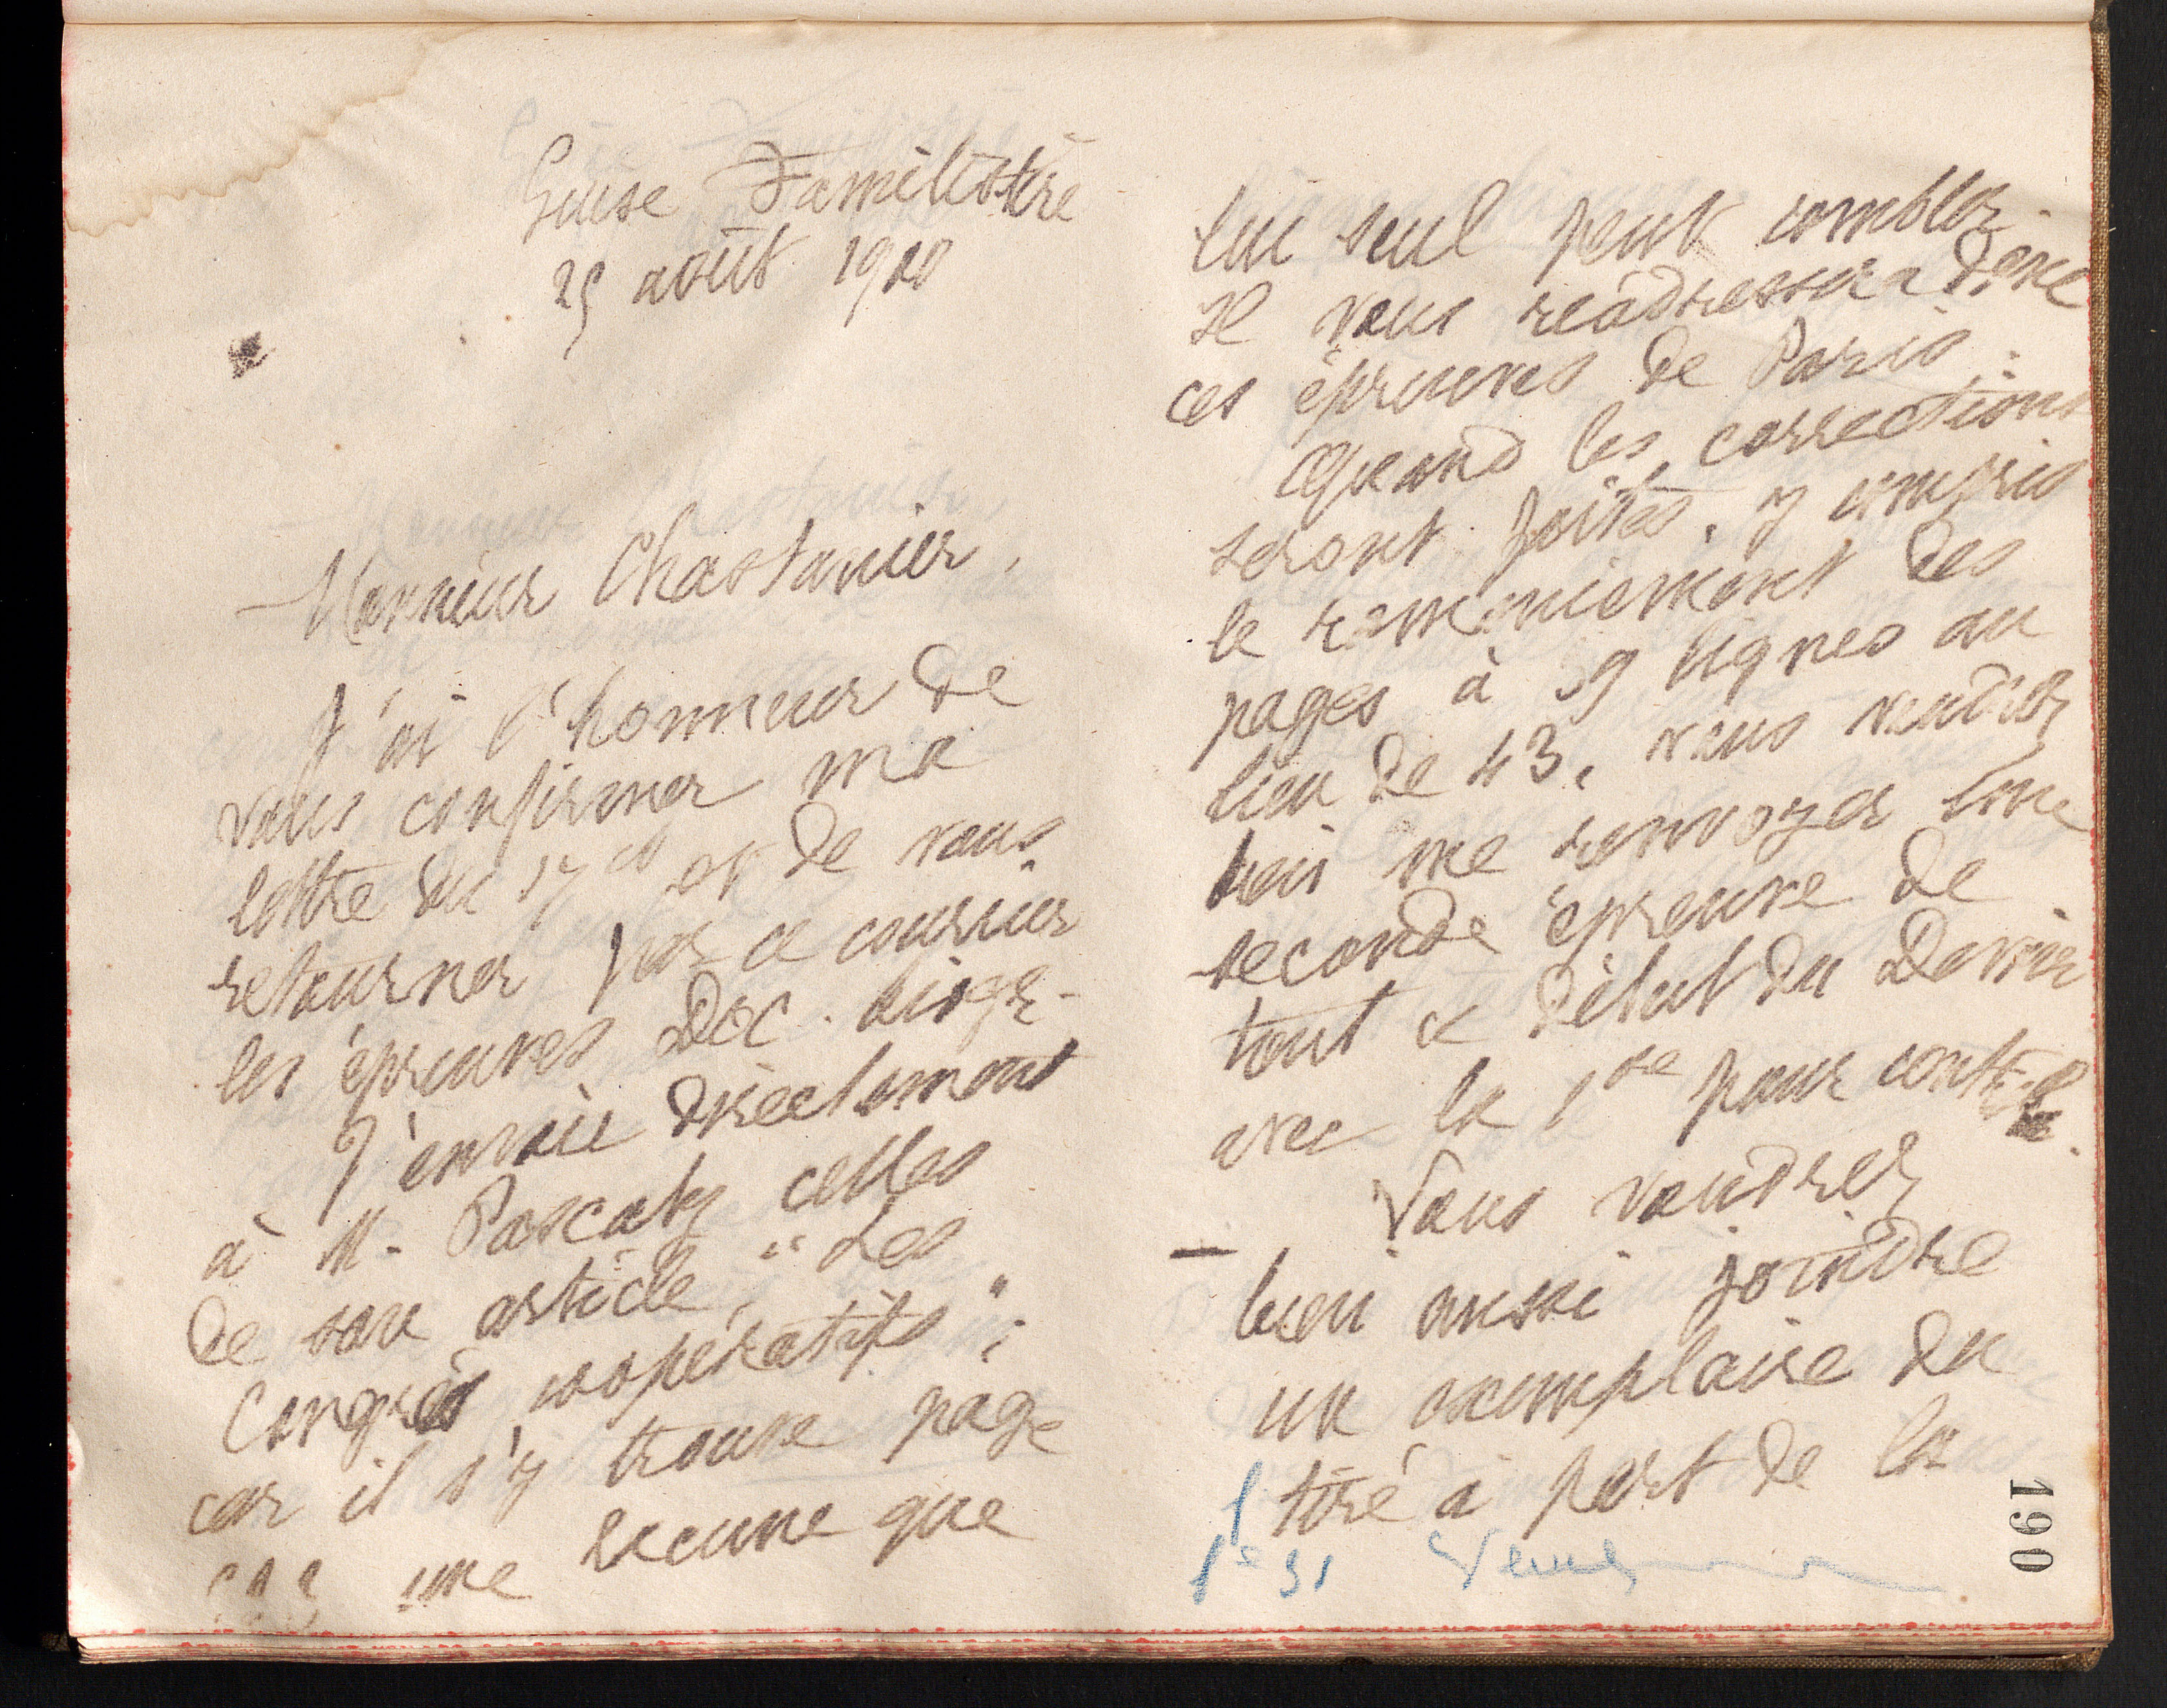 Guise Familistère
25 août 1900
Monsieur Chastanier,
J'ai l'honneur de
vous confirmer ma
lettre du 17 ct et de vous
retourner par ce courrier
les épreuves Doc. biogr-
J'envoie directement
à M. Pascaly celles
de son article, "Les
Congrès coopératifs";
car il s'y trouve page
une lacune que
lui seul peut combler.
Il vous réadressera donc
ces épreuves de Paris.
Quand les corrections
seront faites, y compris
le remaniement des
pages à 39 lignes au
lieu de 43, vous voudrez
bien me renvoyer une
seconde épreuve de
tout ce début du Devoir
avec la 1re pour contrôle.
Vous voudrez
bien aussi joindre
un exemplaire du
tiré à part de la
190